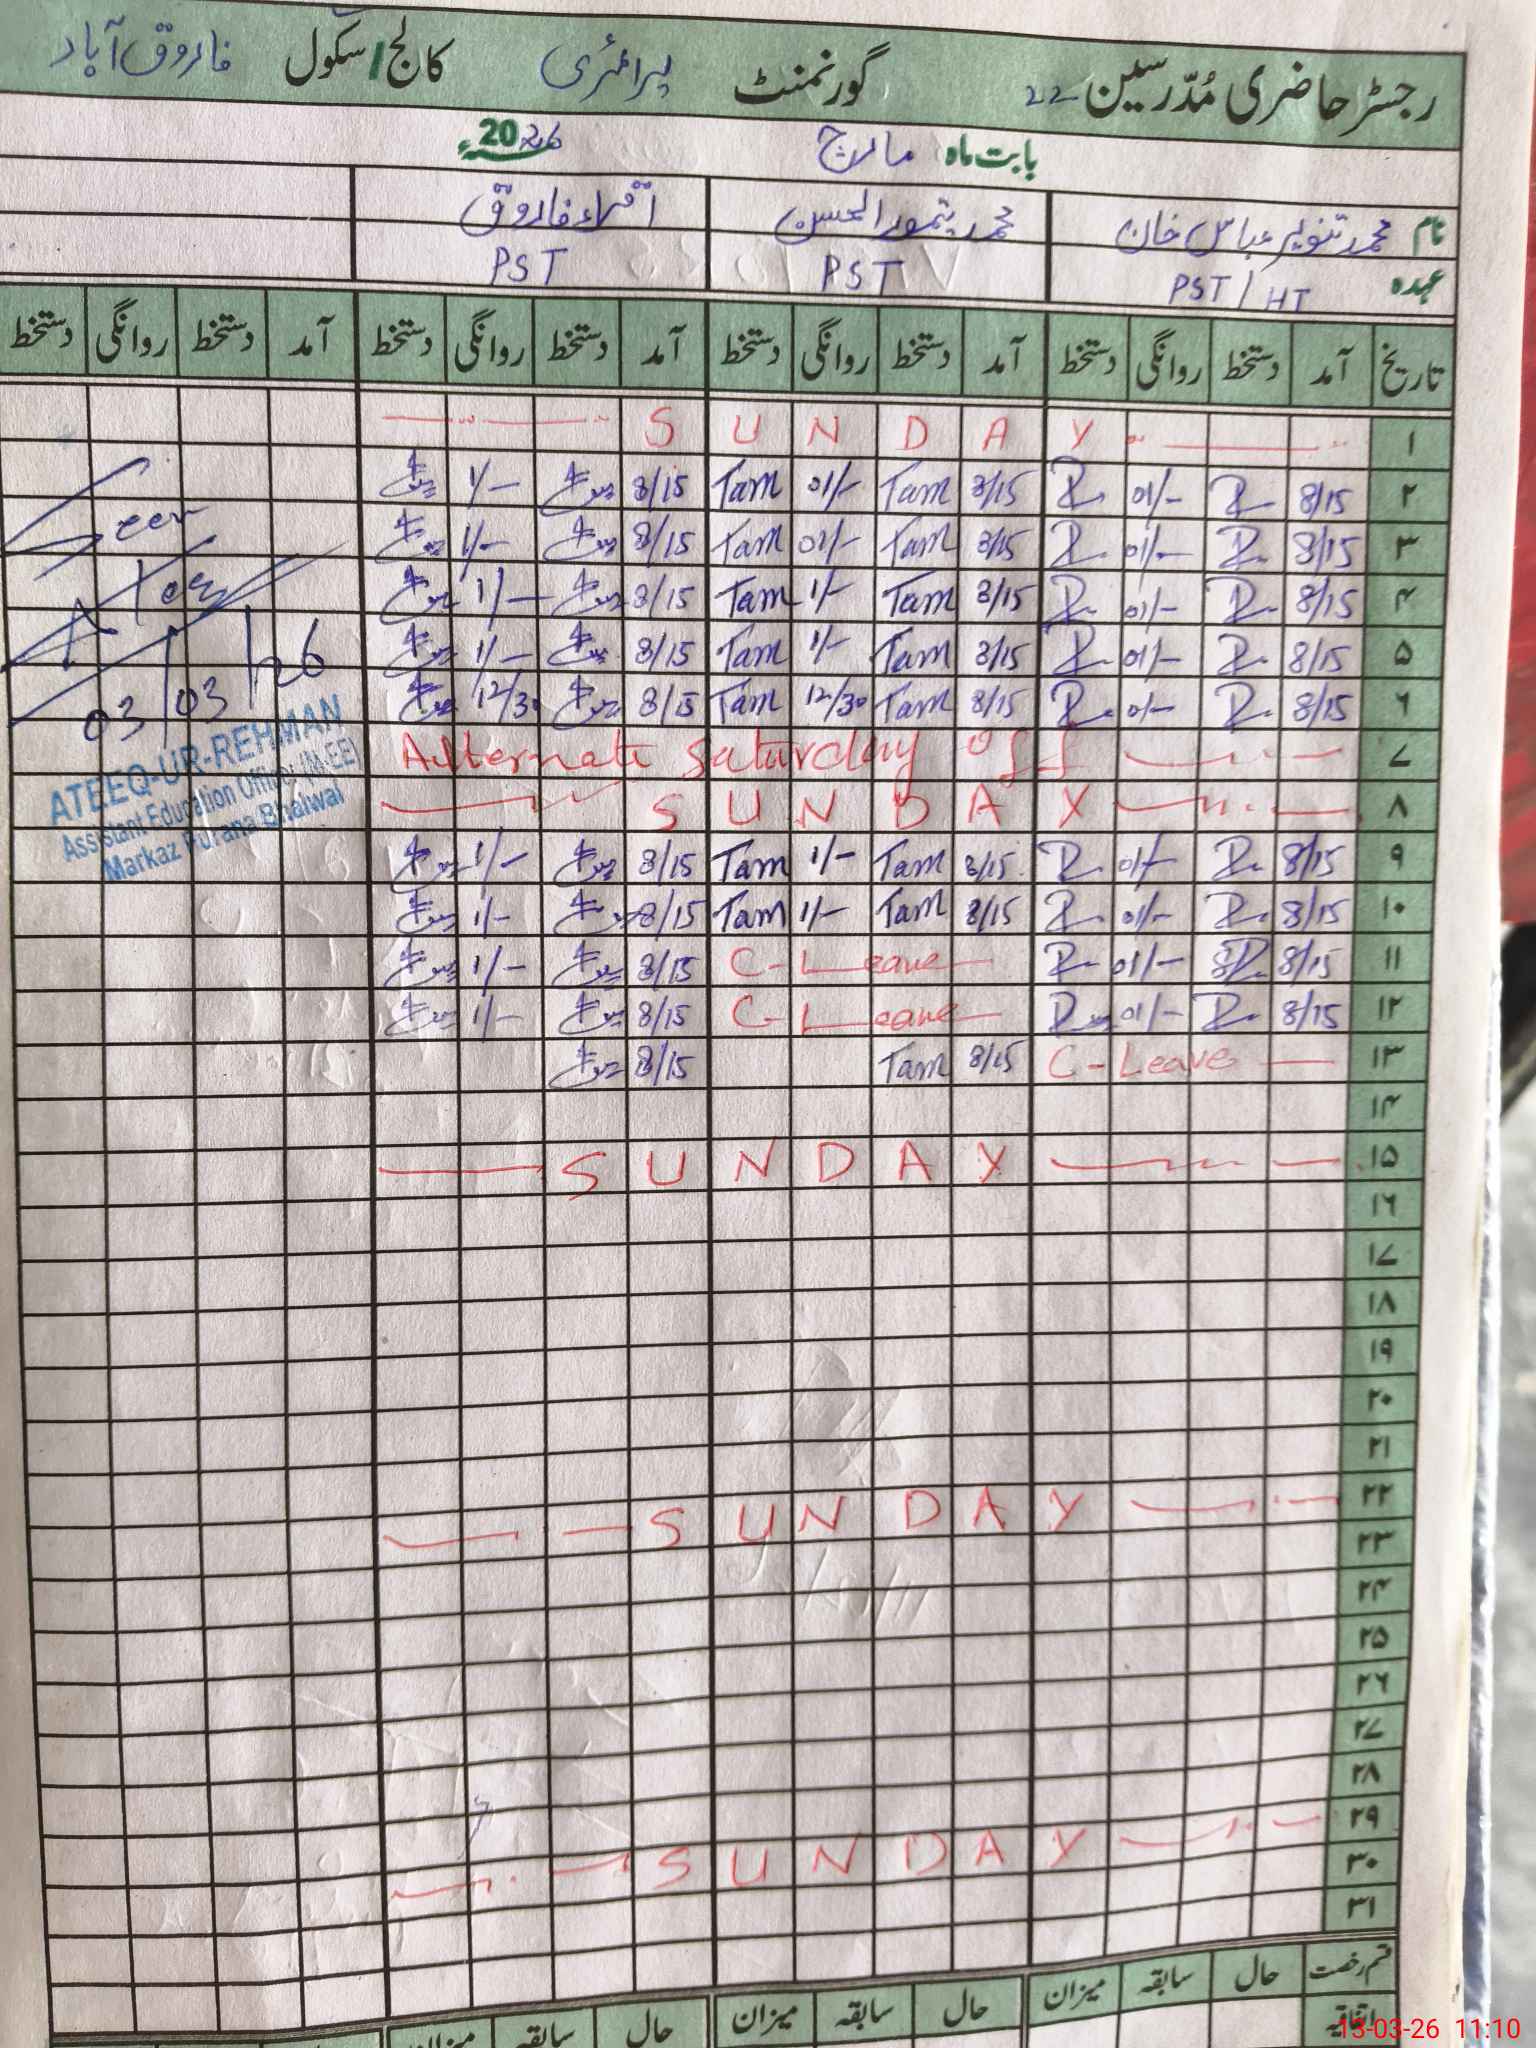 رجسٹر حاضری مُدّرسین 22 گورنمنٹ پرائمری کالج/سکول فاروق آباد
بابت ماہ مارچ 2026ء
نام محمد تنویر عباس خان محمد تیمور الحسن اقراء فاروق
عہدہ PST/HT PST PST
تاریخ آمد دستخط روانگی دستخط آمد دستخط روانگی دستخط آمد دستخط روانگی دستخط آمد دستخط روانگی دستخط
۱ SUNDAY
۲ 8/15 01/- 8/15 Tam 01/- Tam 8/15 1/-
۳ 8/15 01/- 8/15 Tam 01/- Tam 8/15 1/-
۴ 8/15 01/- 8/15 Tam 1/- Tam 8/15 1/-
۵ 8/15 01/- 8/15 Tam 1/- Tam 8/15 1/-
۶ 8/15 01/- 8/15 Tam 12/30 Tam 8/15 12/30
۷ Alternate saturday off
۸ SUNDAY
۹ 8/15 01/- 8/15 Tam 1/- Tam 8/15 1/-
۱۰ 8/15 01/- 8/15 Tam 1/- Tam 8/15 1/-
۱۱ 8/15 01/- C-Leave 8/15 1/-
۱۲ 8/15 01/- C-Leave 8/15 1/-
۱۳ C-Leave 8/15 Tam 8/15
۱۴
۱۵ SUNDAY
۱۶
۱۷
۱۸
۱۹
۲۰
۲۱
۲۲ SUNDAY
۲۳
۲۴
۲۵
۲۶
۲۷
۲۸
۲۹ SUNDAY
۳۰
۳۱
Seen
03/03/26
ATEEQ-UR-REHMAN
Assistant Education Officer (M-EE)
Markaz Purana Bhalwal
قسم رخصت حال سابقہ میزان حال سابقہ میزان حال سابقہ میزان
اتفاقیہ
13-03-26 11:10